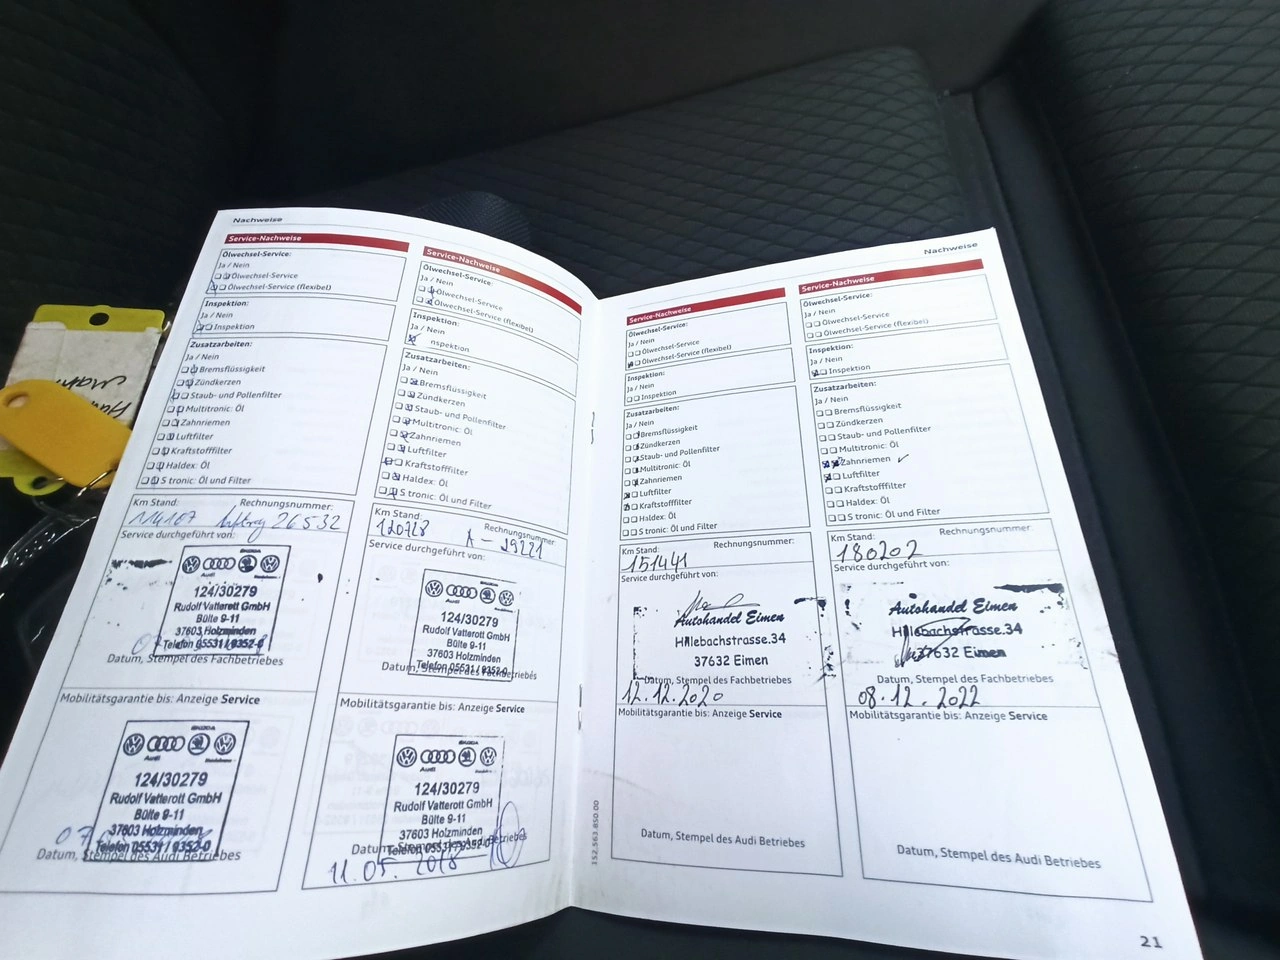 Nachweise
Service-Nachweise
Ölwechsel-Service:
Ja / Nein
Ölwechsel-Service
Ölwechsel-Service (flexibel)
Inspektion:
Ja / Nein
Inspektion
Zusatzarbeiten:
Ja / Nein
Bremsflüssigkeit
Zündkerzen
Staub- und Pollenfilter
Multitronic: Öl
Zahnriemen
Luftfilter
Kraftstofffilter
Haldex: Öl
S tronic: Öl und Filter
Km Stand: Rechnungsnummer:
26532
Service durchgeführt von:
ŠKODA
Audi
124/30279
Rudolf Vatterott GmbH
Bülte 9-11
37603 Holzminden
Telefon 05531 / 9352-0
Datum, Stempel des Fachbetriebes
Mobilitätsgarantie bis: Anzeige Service
ŠKODA
Audi
124/30279
Rudolf Vatterott GmbH
Bülte 9-11
37603 Holzminden
Telefon 05531 / 9352-0
Datum, Stempel des Audi Betriebes
Service-Nachweise
Ölwechsel-Service:
Ja / Nein
Ölwechsel-Service
Ölwechsel-Service (flexibel)
Inspektion:
Ja / Nein
nspektion
Zusatzarbeiten:
Ja / Nein
Bremsflüssigkeit
Zündkerzen
Staub- und Pollenfilter
Multitronic: Öl
Zahnriemen
Luftfilter
Kraftstofffilter
Haldex: Öl
S tronic: Öl und Filter
Km Stand: Rechnungsnummer:
A - 29221
Service durchgeführt von:
ŠKODA
Audi
124/30279
Rudolf Vatterott GmbH
Bülte 9-11
37603 Holzminden
Telefon 05531 / 9352-0
Datum, Stempel des Fachbetriebes
Mobilitätsgarantie bis: Anzeige Service
ŠKODA
Audi
124/30279
Rudolf Vatterott GmbH
Bülte 9-11
37603 Holzminden
Telefon 05531 / 9352-0
Datum, Stempel des Audi Betriebes
11.05.2018
Service-Nachweise
Ölwechsel-Service:
Ja / Nein
Ölwechsel-Service
Ölwechsel-Service (flexibel)
Inspektion:
Ja / Nein
Inspektion
Zusatzarbeiten:
Ja / Nein
Bremsflüssigkeit
Zündkerzen
Staub- und Pollenfilter
Multitronic: Öl
Zahnriemen
Luftfilter
Kraftstofffilter
Haldex: Öl
S tronic: Öl und Filter
Km Stand: Rechnungsnummer:
151441
Service durchgeführt von:
Autohandel Eimen
Hillebachstrasse.34
37632 Eimen
Datum, Stempel des Fachbetriebes
12.12.2020
Mobilitätsgarantie bis: Anzeige Service
Datum, Stempel des Audi Betriebes
152.563.850.00
Nachweise
Service-Nachweise
Ölwechsel-Service:
Ja / Nein
Ölwechsel-Service
Ölwechsel-Service (flexibel)
Inspektion:
Ja / Nein
Inspektion
Zusatzarbeiten:
Ja / Nein
Bremsflüssigkeit
Zündkerzen
Staub- und Pollenfilter
Multitronic: Öl
Zahnriemen
Luftfilter
Kraftstofffilter
Haldex: Öl
S tronic: Öl und Filter
Km Stand: Rechnungsnummer:
180202
Service durchgeführt von:
Autohandel Eimen
Hillebachstrasse.34
37632 Eimen
Datum, Stempel des Fachbetriebes
08.12.2022
Mobilitätsgarantie bis: Anzeige Service
Datum, Stempel des Audi Betriebes
21